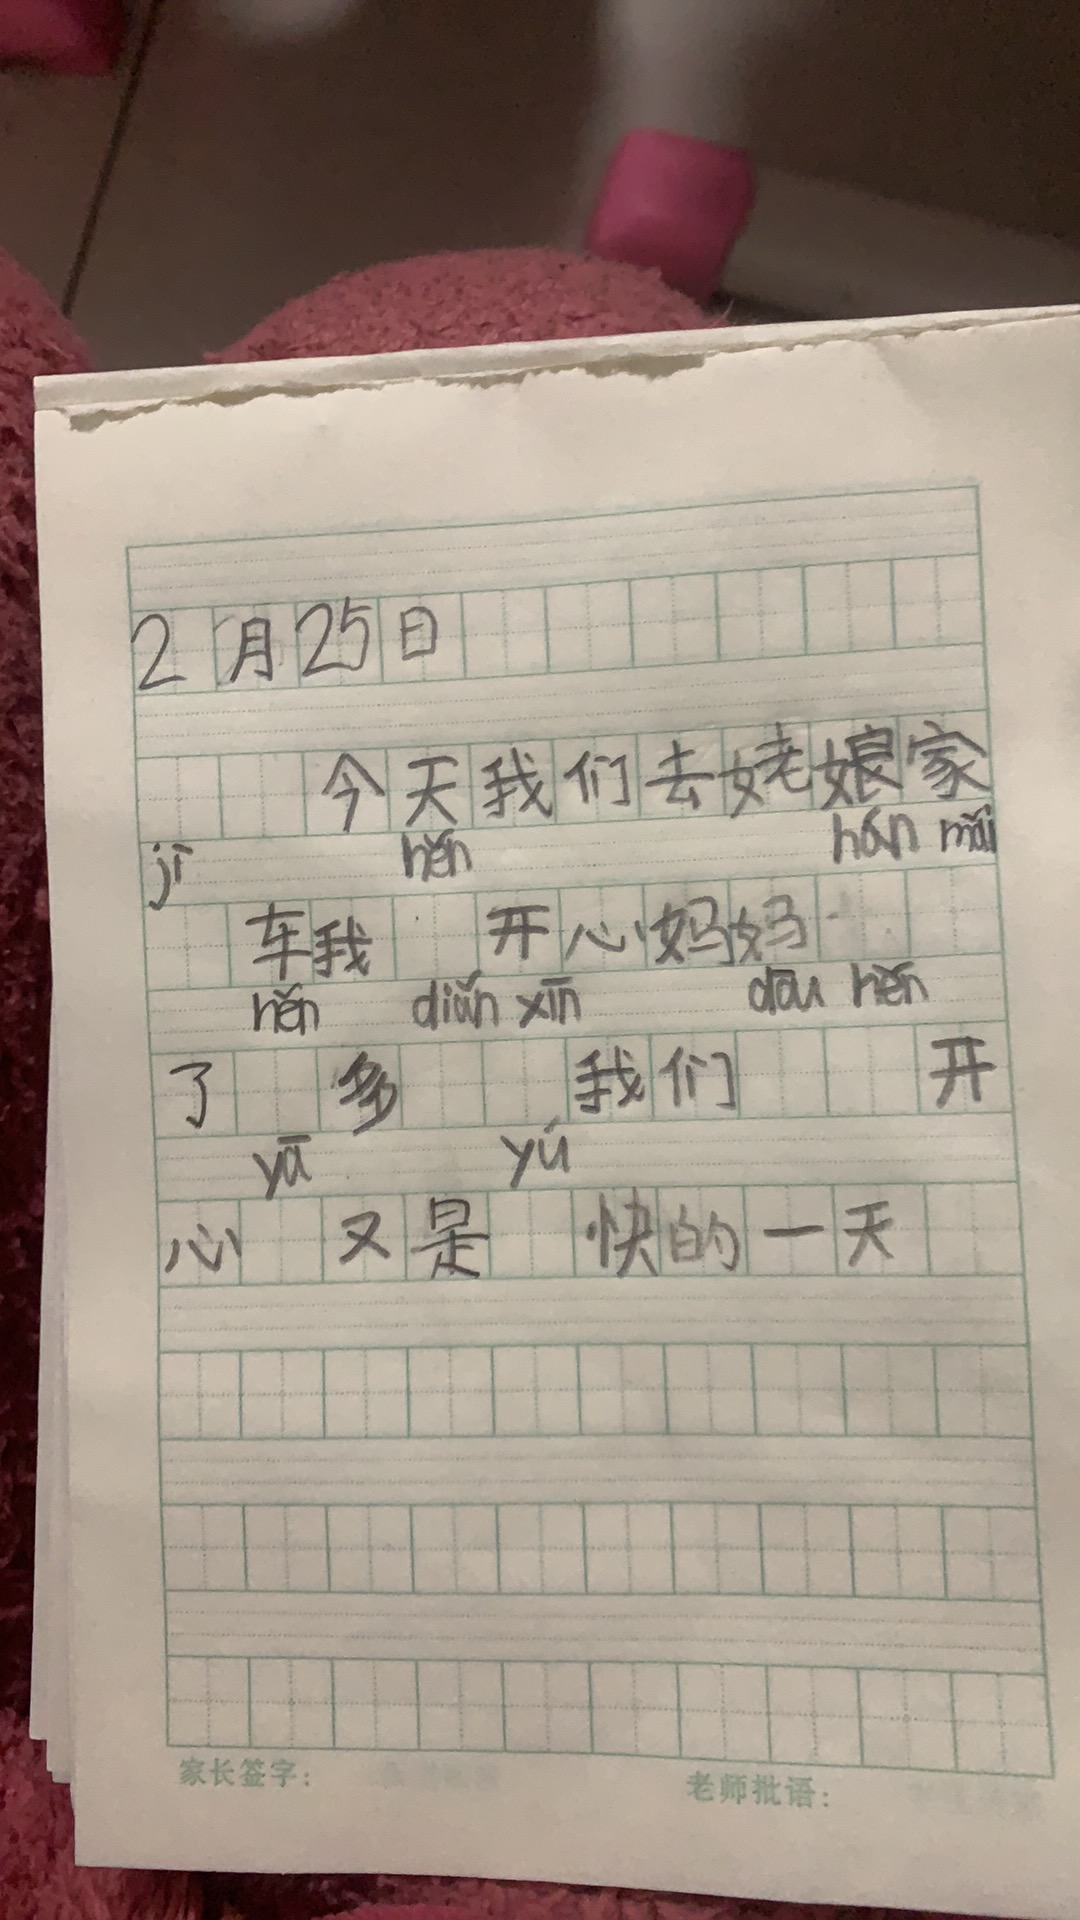 2月25日
今天我们去姥娘家
jī hěn hán mǎi
车我 开心妈妈
hěn diǎn xīn dōu hěn
了 多 我们 开
yā yú
心 又是 快的一天
家长签字： 老师批语：